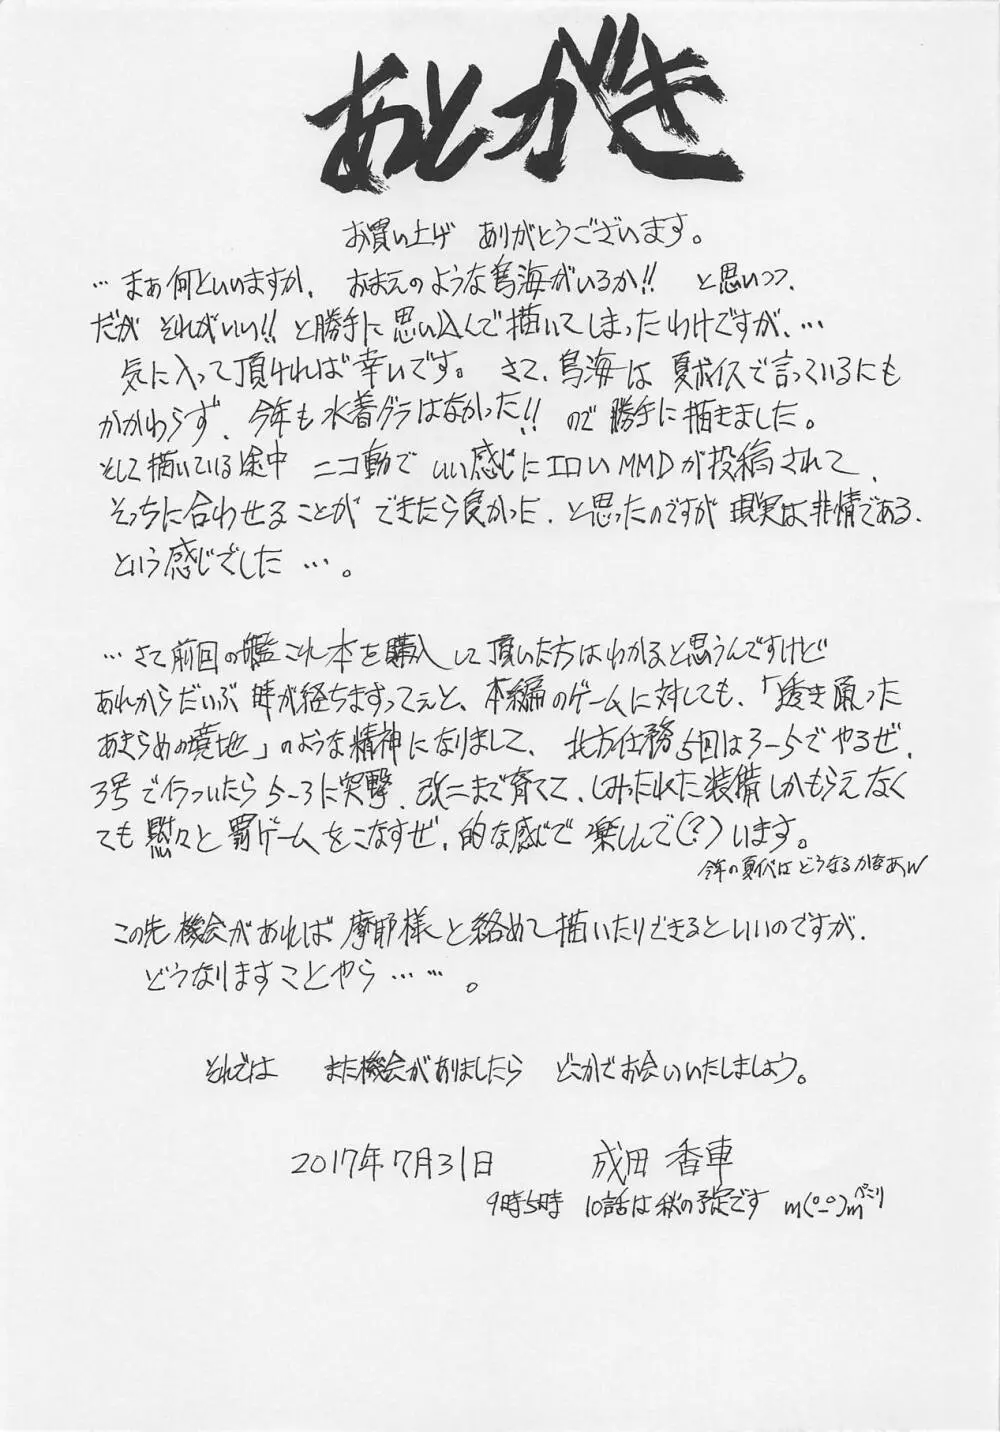 あとがき
お買い上げ ありがとうございます。
…まぁ何といいますか、 おまえのような鳥海がいるか!! と思いつつ、
だが それがいい!! と勝手に思い込んで描いてしまったわけですが、…
気に入って頂ければ幸いです。 さて、鳥海は 夏ボイスで言っているにも
かかわらず、今年も水着グラはなかった!! ので勝手に描きました。
そして描いている途中 ニコ動で いい感じにエロいMMDが投稿されて、
そっちに合わせることが できたら良かった、と思ったのですが 現実は非情である、
という感じでした …。
…さて前回の艦これ本を購入して頂いた方はわかると思うんですけど
あれからだいぶ 時が経ちますってぇと、本編のゲームに対しても、「透き通った
あきらめの境地」のような精神になりまして、北方任務5回は3-5でやるぜ、
3号で行ったら5-3に突撃、改二まで育てて、しみったれた装備しかもらえなく
ても黙々と罰ゲームをこなすぜ、的な感じで楽しんで(?)います。
今年の夏イベは どうなるかなあw
この先機会があれば摩耶様と絡めて描いたりできるといいのですが、
どうなりますことやら……。
それでは また機会がありましたら どこかでお会いいたしましょう。
2017年7月31日 成田 香車
9時5時 10話は秋の予定です m(°_°)m ぺこり